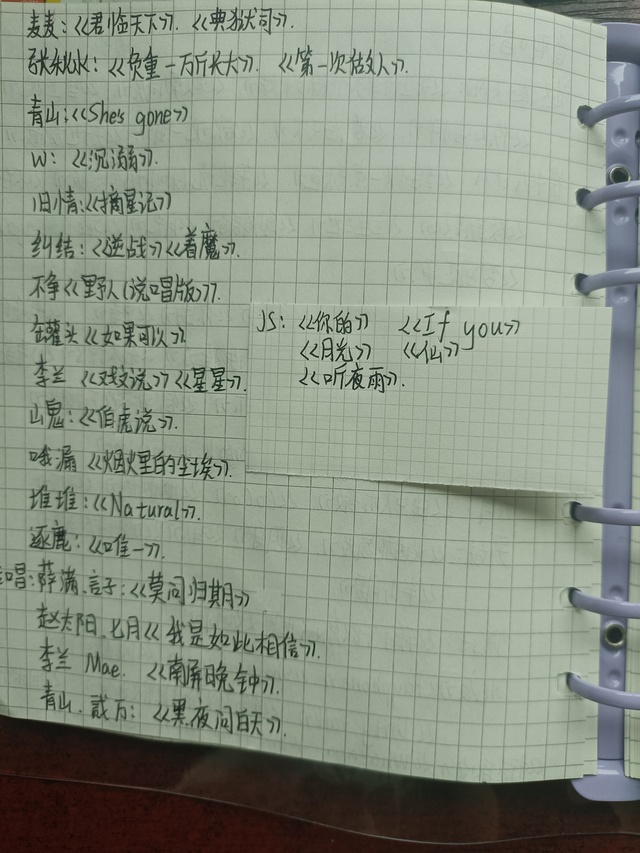 麦麦:《君临天下》. 《典狱司》.
张秋水:《负重一万斤长大》. 《第一次做人》.
青山:《She's gone》
W:《沉溺》.
旧情:《摘星记》
纠结:《逆战》《着魔》.
不争《野人(说唱版)》.
金罐头《如果可以》.
李兰《戏文说》《星星》.
山鬼:《伯虎说》.
哦漏《烟火里的尘埃》.
堆堆:《Natural》.
逐鹿:《唯一》.
唱:薛满.言子:《莫问归期》
赵太阳.七月《我是如此相信》.
李兰 Mae. 《南屏晚钟》.
青山.贰万:《黑夜问白天》.
JS:《你的》 《If you》
《月光》 《仙》
《听夜雨》.